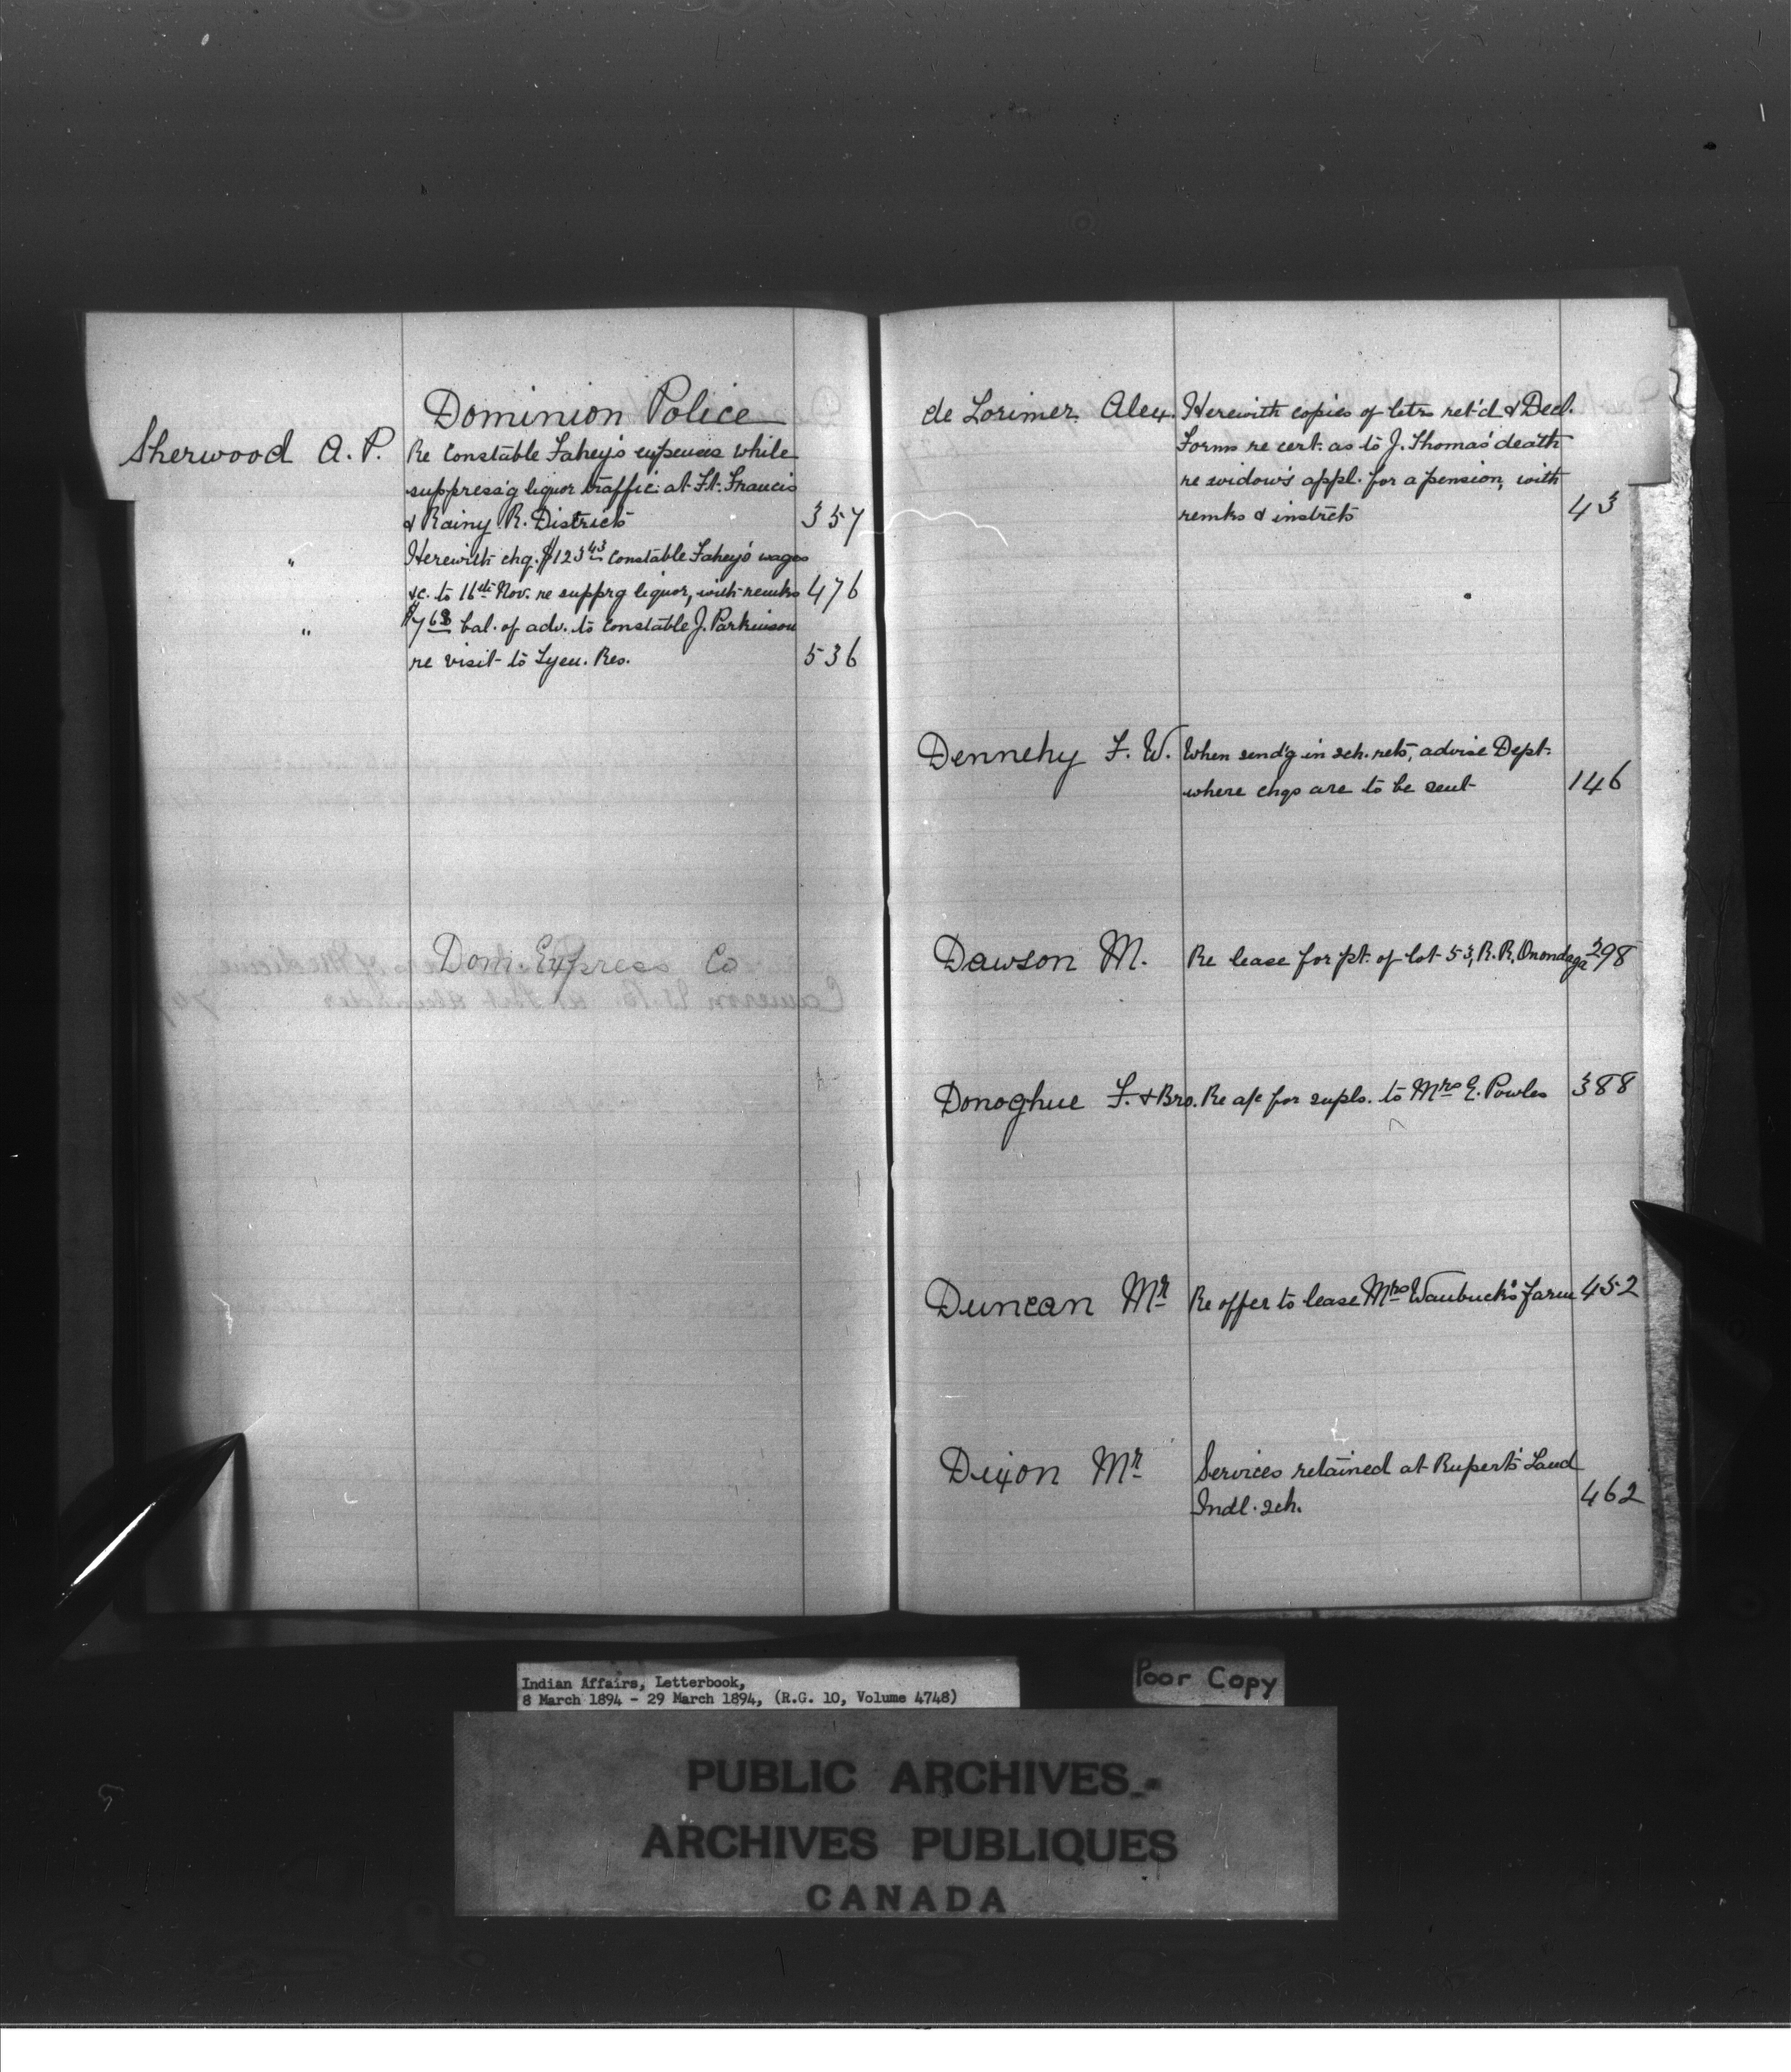 Dominion Police
Sherwood A. P. Re Constable Fahey's expenses while
suppress'g liquor traffic at Ft. Francis
& Rainy R. Districts 357
" Herewith chq. $123.43 Constable Fahey's wages
&c. to 16th Nov. re supprg liquor, with remks 476
" $7.68 bal. of adv. to Constable J. Parkinson
re visit to Tyen. Res. 536
Dom. Express Co
de Lorimer Alex. Herewith copies of letrs ret'd & Decl.
Forms re cert. as to J. Thomas' death
re widow's appl. for a pension, with
remks & instrcts 43
Dennehy F. W. When send'g in sch. rets, advise Dept.
where chqs are to be sent 146
Dawson M. Re lease for pt. of lot 53, R. R, Onondaga 298
Donoghue F. & Bro. Re a/c for supls. to Mrs E. Powles 388
Duncan Mr Re offer to lease Mrs Waubuck's farm 452
Dixon Mr Services retained at Rupert's Land
Indl. sch. 462
Indian Affairs, Letterbook,
8 March 1894 - 29 March 1894, (R.G. 10, Volume 4748)
Poor Copy
PUBLIC ARCHIVES
ARCHIVES PUBLIQUES
CANADA